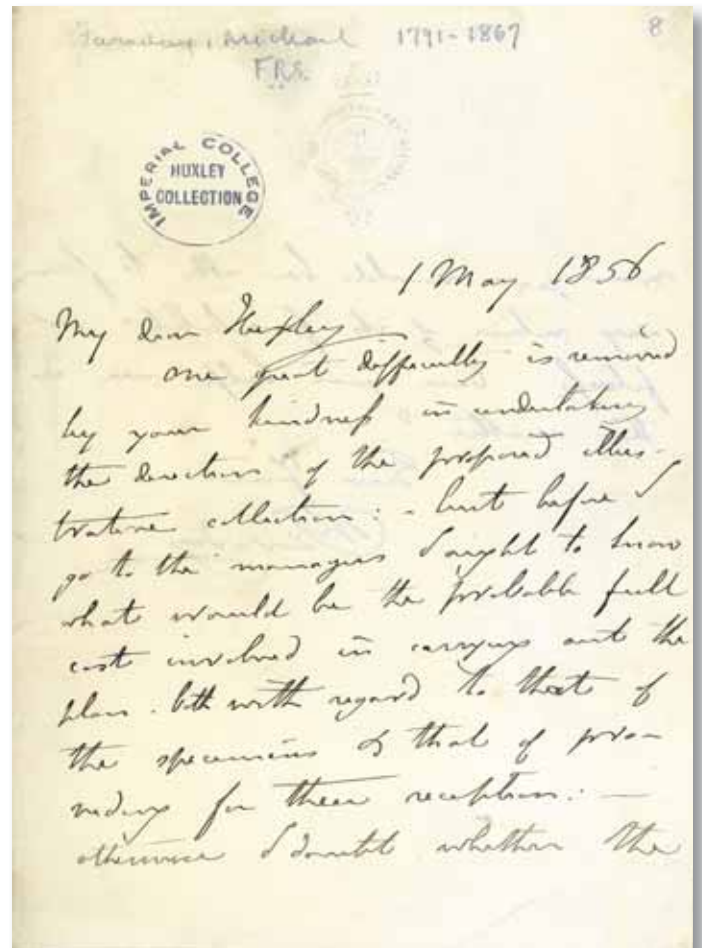 Faraday, Michael 1791-1867 8
F.R.S.
IMPERIAL COLLEGE
HUXLEY
COLLECTION
1 May 1856
My dear Huxley
One great difficulty is removed
by your kindness in undertaking
the direction of the proposed illus-
trative collection: - but before I
go to the managers I ought to know
what would be the probable full
cost involved in carrying out the
plan. both with regard to that of
the specimens & that of pro-
viding for their reception: —
otherwise I doubt whether the